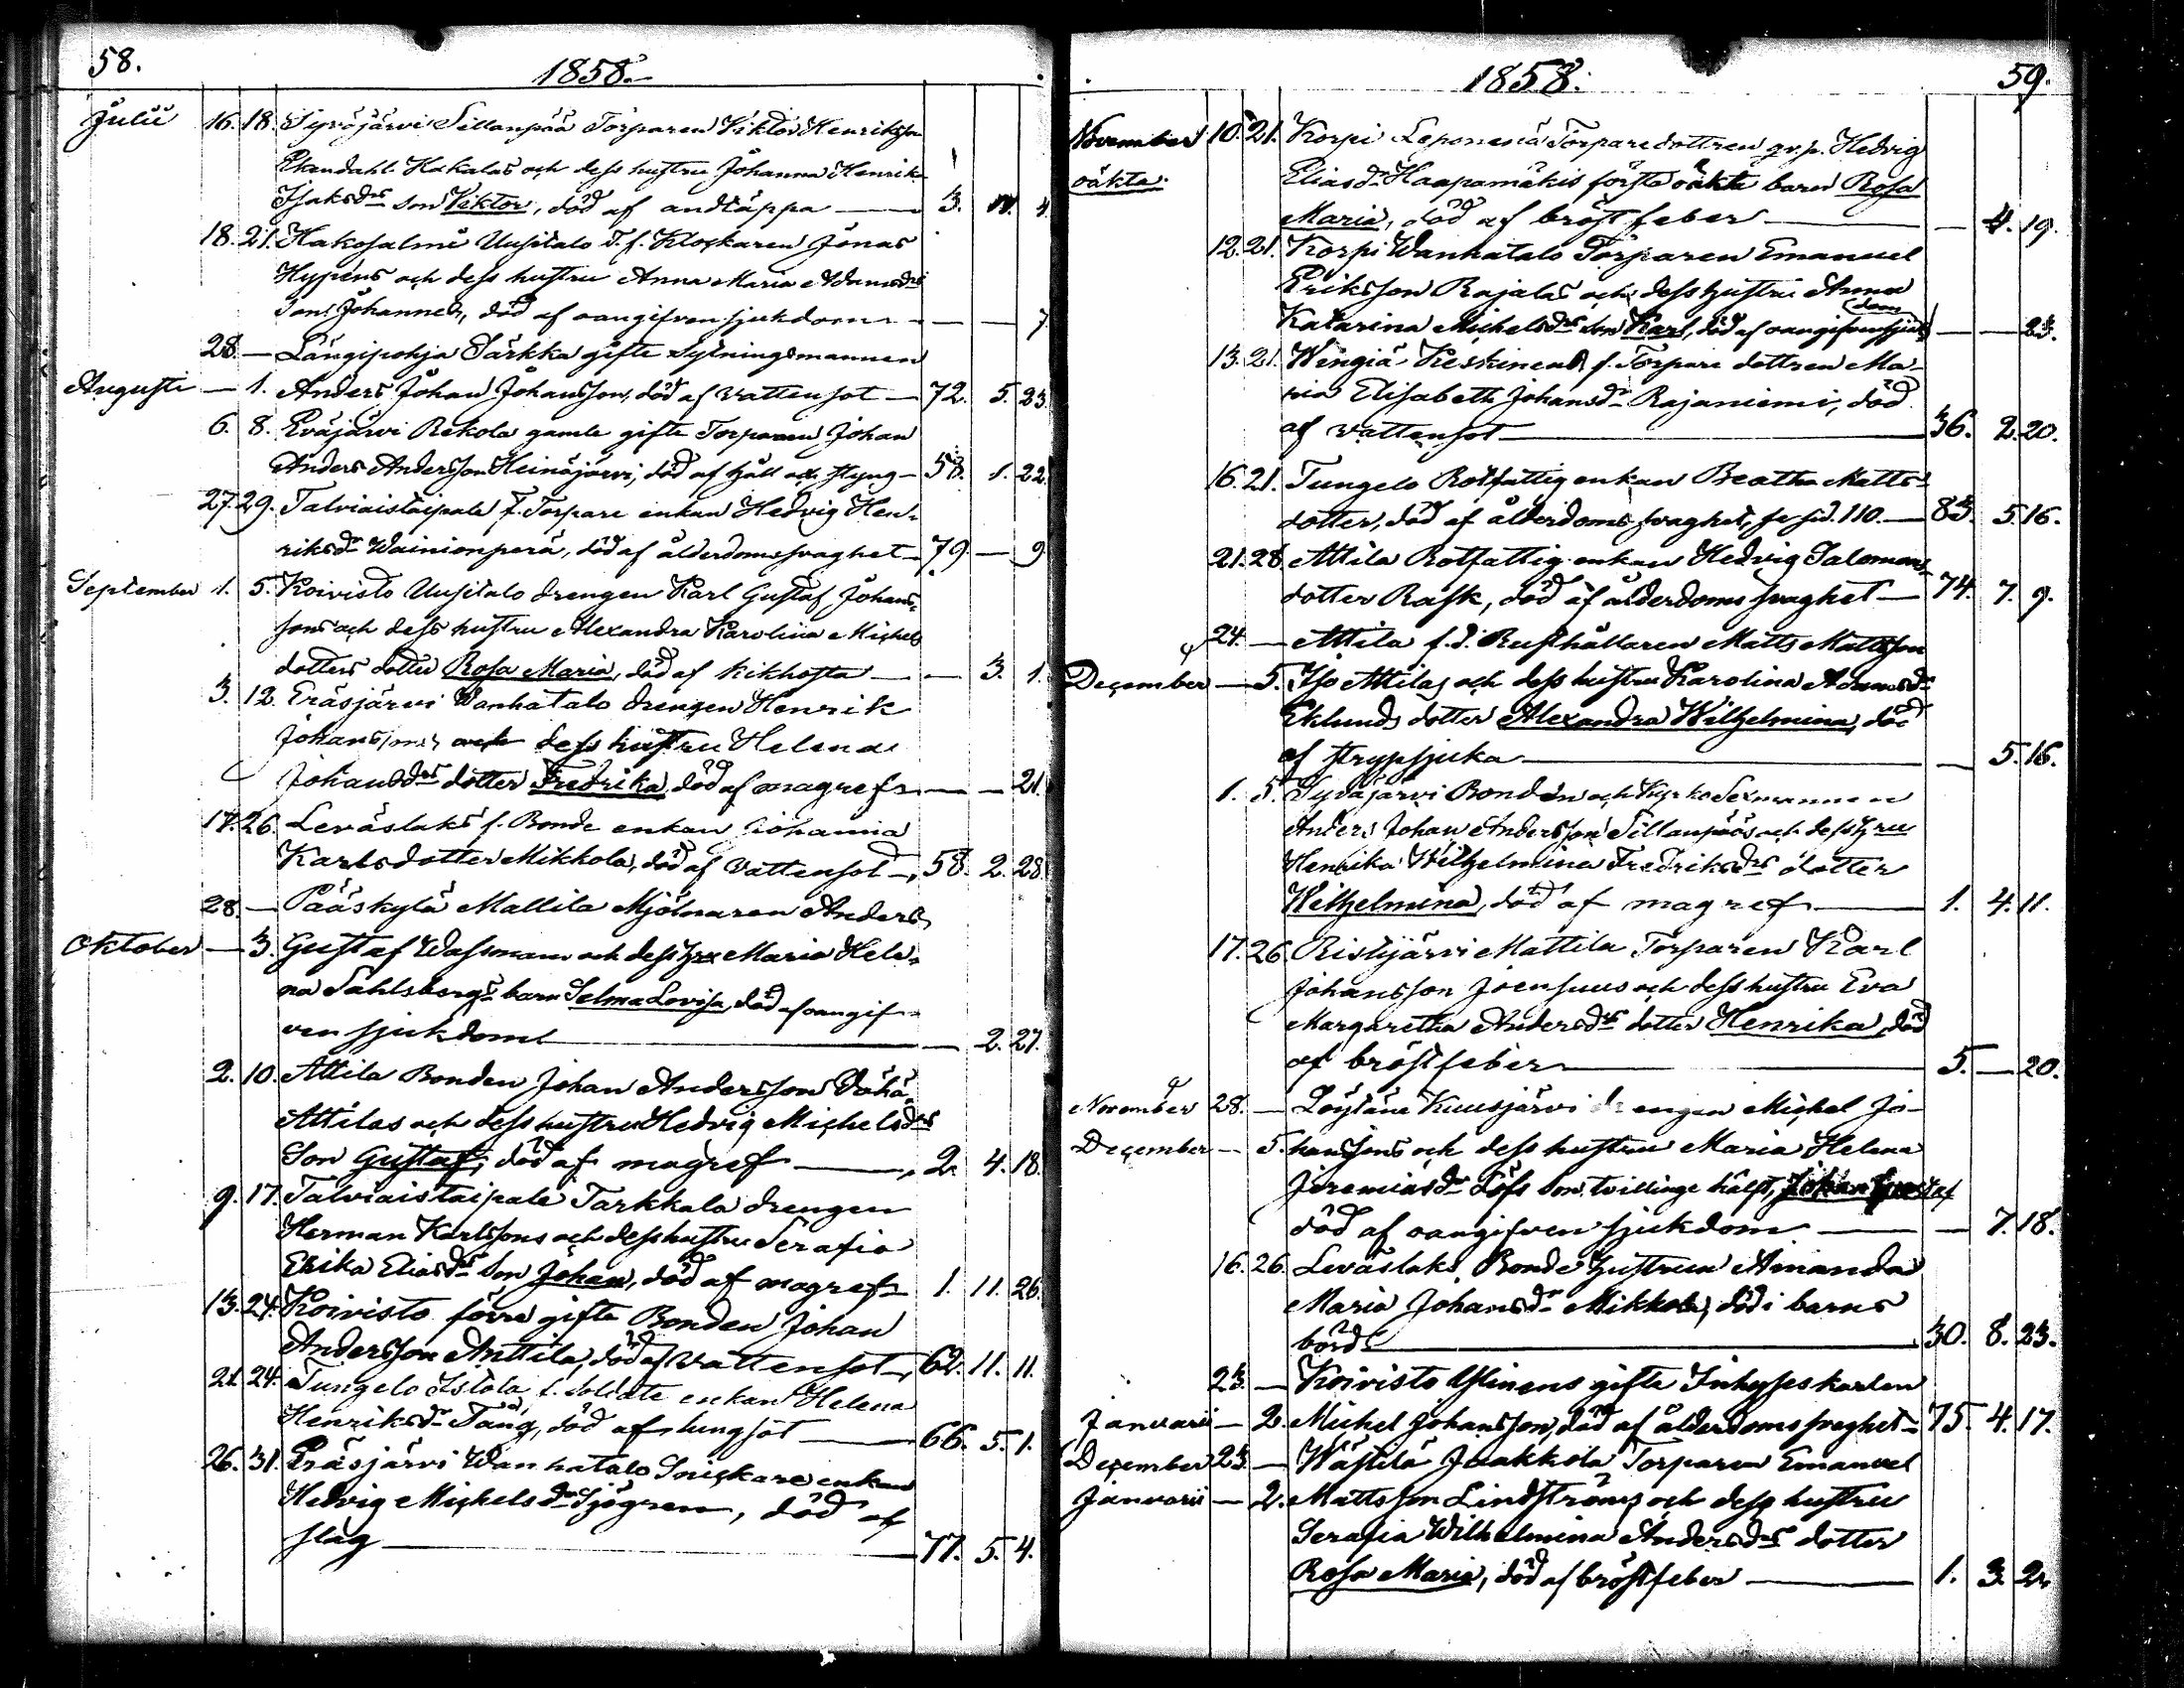 58.
1858.
Julii 16. 18. Syväjärvi Sillanpää Torparen Viktor Henriksson
Ekendahl Kakalas och dess hustru Johanna Henrika
Isaksdrs son Viktor, död af andtäppa — 3. 11. 4.
18. 21. Hakosalmi Uusitalo T. f. Klockaren Jonas
Hypéns och dess hustru Anna Maria Adamsdrs
Son Johannes, död af oangifven sjukdom — — 7.
28. — Längipohja Särkka gifte Sytningsmannen
Augusti — 1. Anders Johan Johansson, död af vattensot — 72. 5. 23.
6. 8. Eväjärvi Rekola gamle gifte Torparen Johan
Anders Andersson Heinäjärvi, död af håll och styng — 58. 1. 22.
27. 29. Talviaistaipale f. Torpare enkan Hedvig Hen-
riksdr Wainionperä, död af ålderdomssvaghet — 79. — 9.
September 1. 5. Koivisto Uusitalo drengen Karl Gustaf Johans-
sons och dess hustru Alexandra Karolina Michels
dotters dotter Rosa Maria, död af kikhosta — — 3. 1.
3. 12. Eräsjärvi Wanhatalo drengen Henrik
Johanssons och dess hustru Helena
Johansdrs dotter Fredrika, död af magref — — — 21.
17. 26. Leväslaks f. Bonde enkan Johanna
Karlsdotter Mikkola, död af vattensot — 58. 2. 28.
28. — Pääskylä Mallila Mjölnaren Anders
Oktober — 3. Gustaf Wassmans och dess hru Maria Hele-
na Sahlsbergs barn Selma Lovisa, död af oangif-
ven sjukdom — — 2. 27.
2. 10. Attila Bonden Johan Andersson Vähä-
Attilas och dess hustru Hedvig Michelsdrs
Son Gustaf, död af magref — 2. 4. 18.
9. 17. Talviaistaipale Tarkkala drengen
Herman Karlssons och dess hustru Serafia
Erika Eliasdrs son Johan, död af magref — 1. 11. 26.
13. 24. Koivisto förre gifte Bonden Johan
Andersson Anttila, död af Vattensot — 62. 11. 11.
21. 24. Tungelo Isotalo f. Soldate enkan Helena
Henriksdr Tång, död af lungsot — 66. 5. 1.
26. 31. Eräsjärvi Wanhatalo Snickare enkan
Hedvig Michelsdr Sjögren, död af
slag — 77. 5. 4.
1858.
59.
November 10. 21. Korpi Leponens Torparedottren qv.p. Hedvig
oäkta. Eliasdr Haapamäkis förste oäkta barn Rosa
Maria, död af bröstfeber — — 4. 19.
12. 21. Korpi Wanhatalo Torparen Emanuel
Eriksson Rajalas och dess hustru Anna
Katarina Michelsdrs son Karl, död af oangifven sjukdom — — 23.
13. 21. Wengiä Keskinens f. Torpare dottren Ma-
ria Elisabeth Johansdr Rajaniemi, död
af vattensot — 36. 2. 20.
16. 21. Tungelo Rotfattig enkan Beatha Matts-
dotter, död af ålderdoms svaghet, se sid. 110. — 83. 5. 16.
21. 28. Attila Rotfattig enkan Hedvig Salomons-
dotter Rask, död af ålderdoms svaghet — 74. 7. 9.
24. — Attila f. d. Rusthållaren Matts Mattsson
December — 5. Iso Attilas och dess hustru Karolina Adamsdr
Eklunds dotter Alexandra Wilhelmina, död
af strypsjuka — — 5. 16.
1. 5. Syväjärvi Bonden och Kyrko Sexmannen
Anders Johan Andersson Sillanpääs och dess hru
Henrika Wilhelmina Fredriksdrs dotter
Wilhelmina, död af magref — 1. 4. 11.
17. 26. Ristijärvi Mattila Torparen Karl
Johansson Joensuus och dess hustru Eva
Margaretha Andersdrs dotter Henrika, död
af bröstfeber — 5. — 20.
November 28. — Löytäne Kuusjärvi drengen Michel Jo-
December — 5. hanssons och dess hustru Maria Helena
Jeremiasdr Löfs son, tvillinge hälft, Johan Gustaf
död af oangifven sjukdom — — 7. 18.
16. 26. Leväslaks Bonde hustrun Amanda
Maria Johansdr Mikkola, död i barns
börd — 30. 8. 23.
23. — Koivisto Ylinens gifte Inhyseskarlen
Januarii — 2. Michel Johansson, död af ålderdoms svaghet — 75. 4. 17.
December 23. — Wästilä Jaakkola Torparen Emanuel
Januarii — 2. Mattsson Lindströms och dess hustru
Serafia Wilhelmina Andersdrs dotter
Rosa Maria, död af bröstfeber — 1. 3. 2